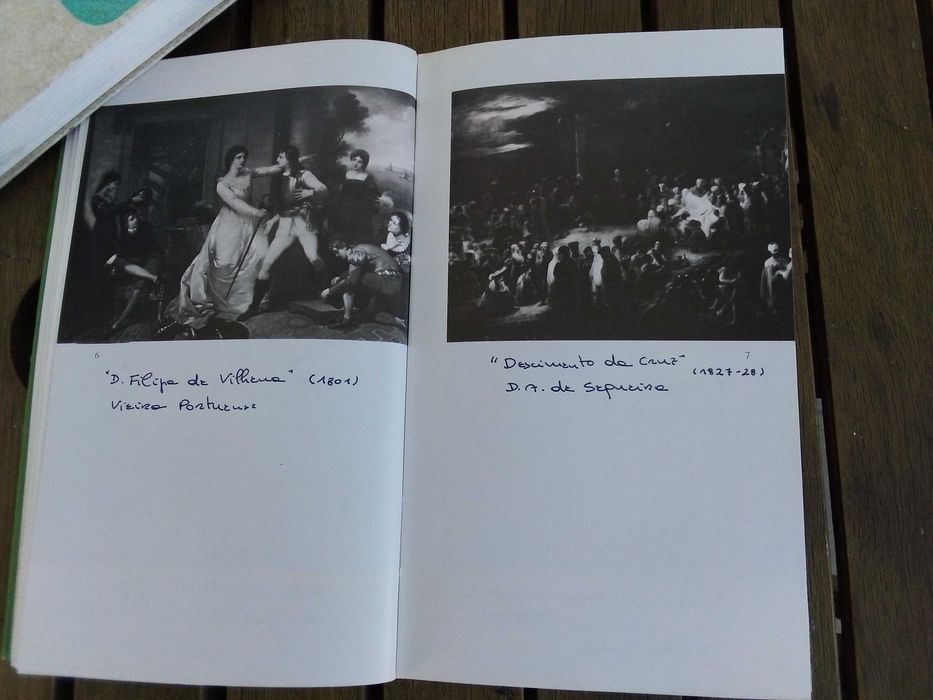 6
"D. Filipa de Vilhena" (1801)
Vieira Portuense
7
"Descimento da Cruz"
(1827-28)
D. A. de Sequeira